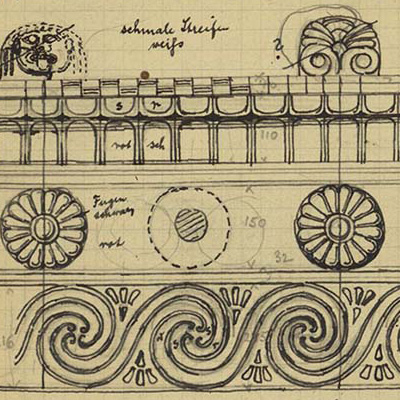 schmale Streifen
weiß
?
s r
rot sch
110
Fugen
schwarz
rot
150
32